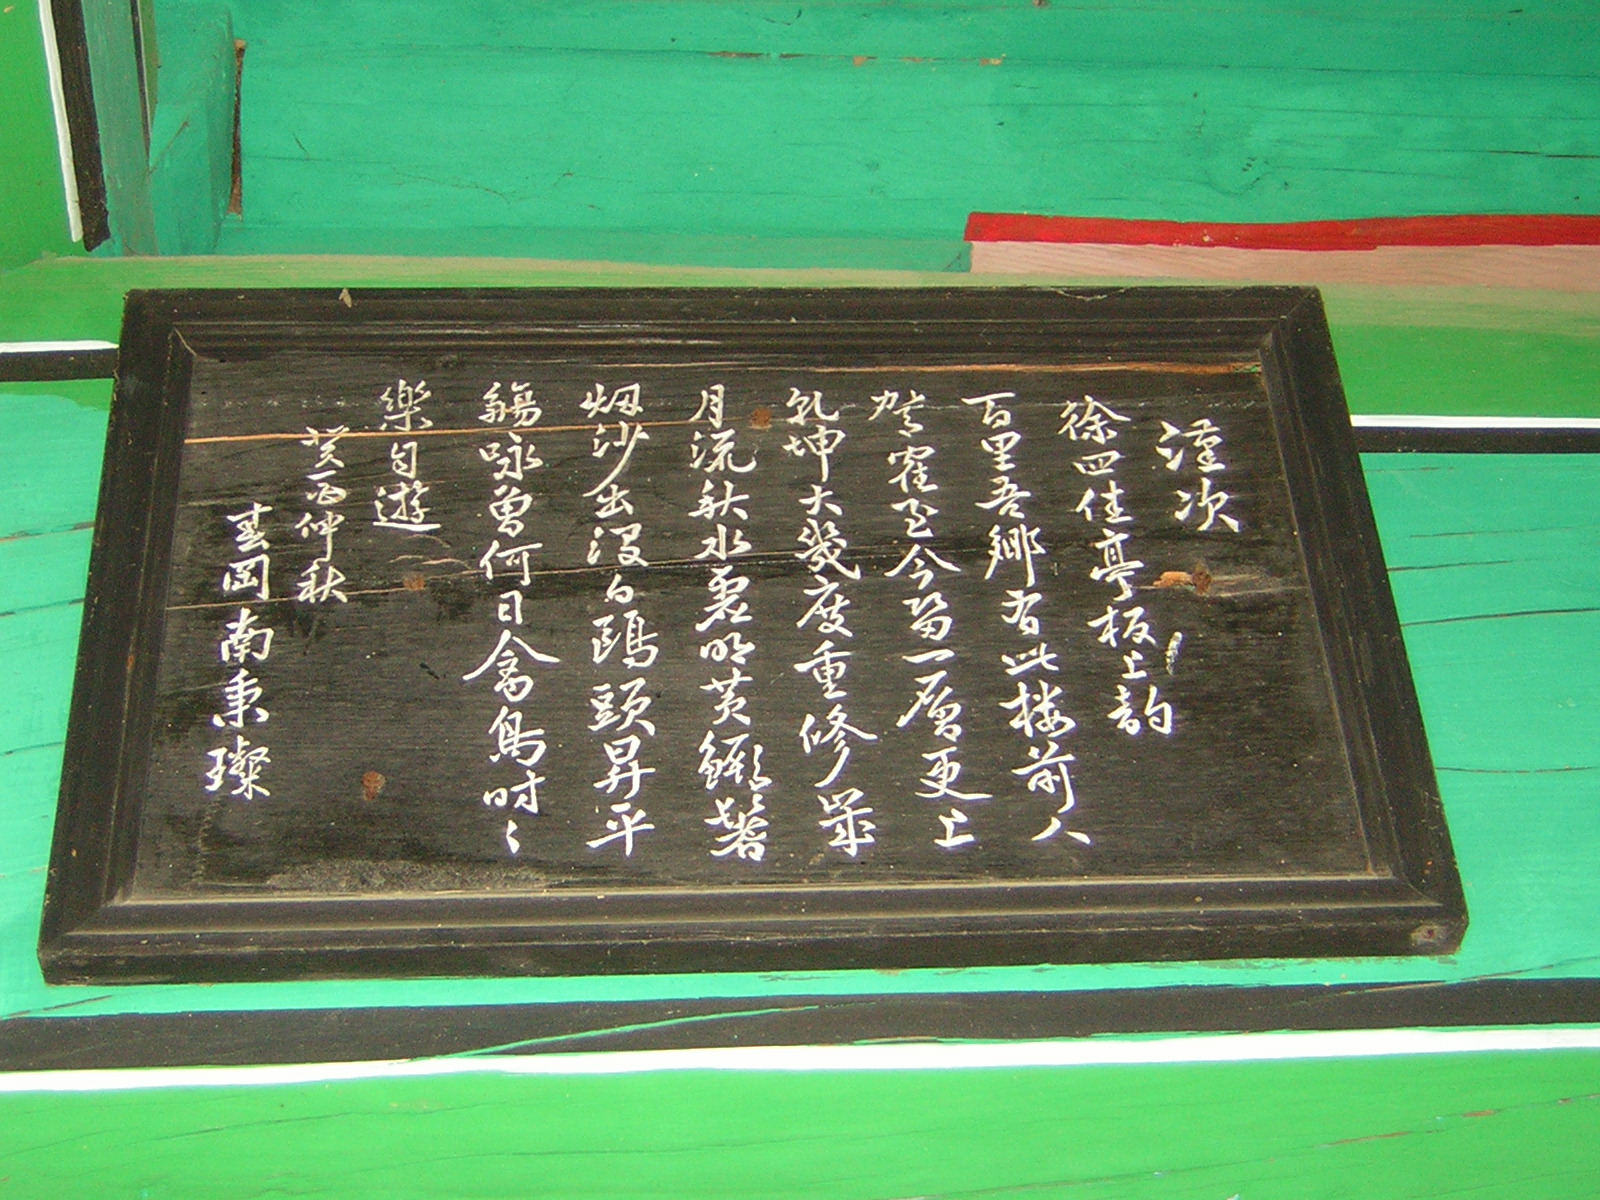 謹次
徐四佳亭板上韵
百里吾鄉有此楼前人
至今留一層更上
乾坤大幾度重修歲
月流秋水裏明黄鱖鬐
烟沙出没白鷗頭昇平
觴咏曾何日禽鳥時〻
樂自遊
癸酉仲秋
岡南秉璨